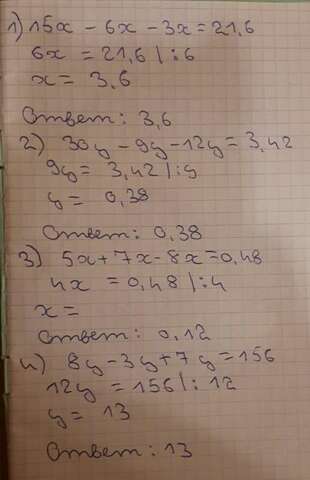 1) 15x - 6x - 3x = 21,6
6x = 21,6 | : 6
x = 3,6
Ответ: 3,6
2) 30y - 9y - 12y = 3,42
9y = 3,42 | : 9
y = 0,38
Ответ: 0,38
3) 5x + 7x - 8x = 0,48
4x = 0,48 | : 4
x =
Ответ: 0,12
4) 8y - 3y + 7y = 156
12y = 156 | : 12
y = 13
Ответ: 13